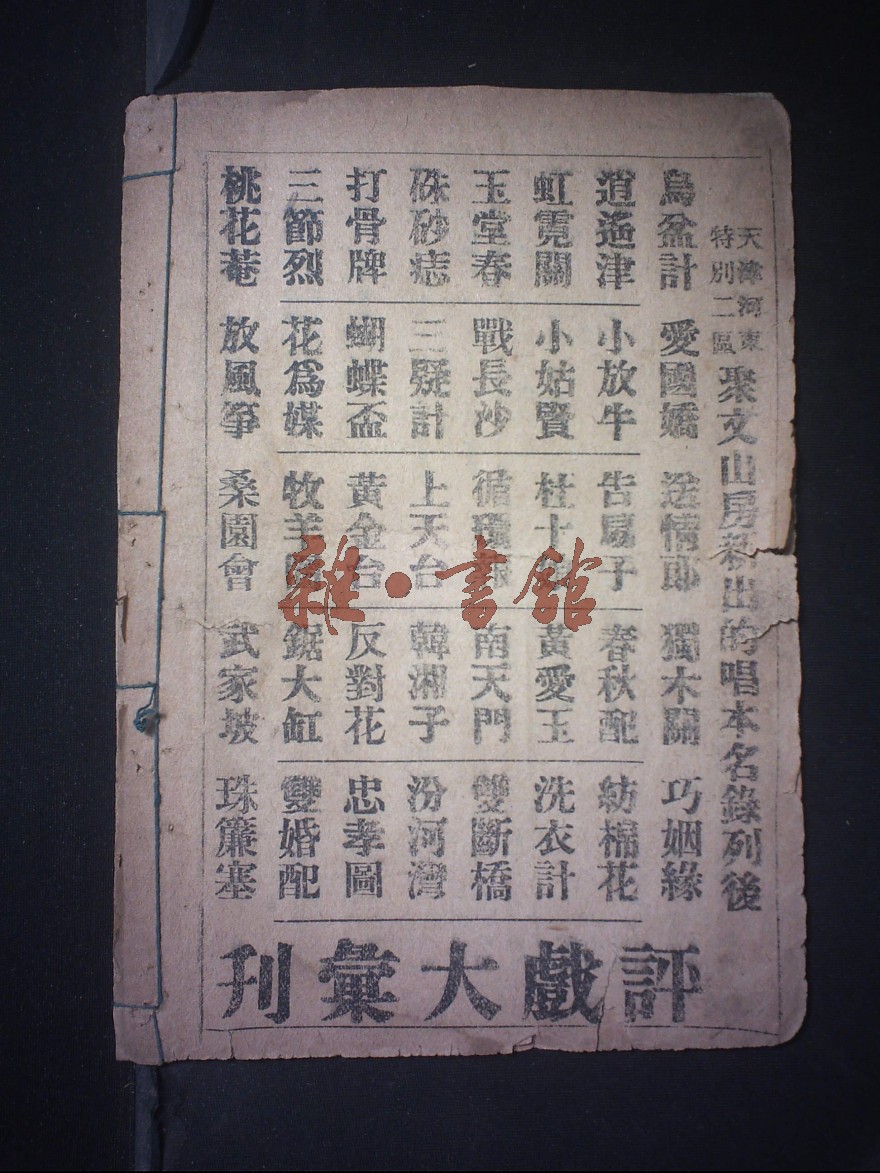 天津河東
特別二區
聚文山房新出的唱本名錄列後
烏盆計 愛國嬌 情郎 獨木關 巧姻緣
逍遙津 小放牛 告扇子 春秋配 紡棉花
虹霓關 小姑賢 杜十 黃愛玉 洗衣計
玉堂春 戰長沙 循環 南天門 雙斷橋
硃砂痣 三疑計 上天台 韓湘子 汾河灣
打骨牌 蝴蝶盃 黃金台 反對花 忠孝圖
三節烈 花爲媒 牧羊 鋸大缸 雙婚配
桃花菴 放風箏 桑園會 武家坡 珠簾塞
評戲大彙刊
雜·書館